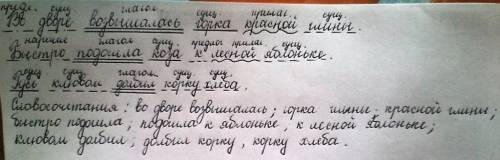 предл. сущ. глагол. сущ. прилаг. сущ.
Во дворе возвышалась горка красной глины.
наречие глагол сущ. предлог прилаг. сущ.
Быстро подошла коза к лесной яблоньке.
сущ. сущ. глагол. сущ. сущ.
Гусь клювом долбил корку хлеба.
Словосочетания: во дворе возвышалась; горка глины; красной глины;
быстро подошла; подошла к яблоньке, к лесной яблоньке;
клювом долбил; долбил корку, корку хлеба.